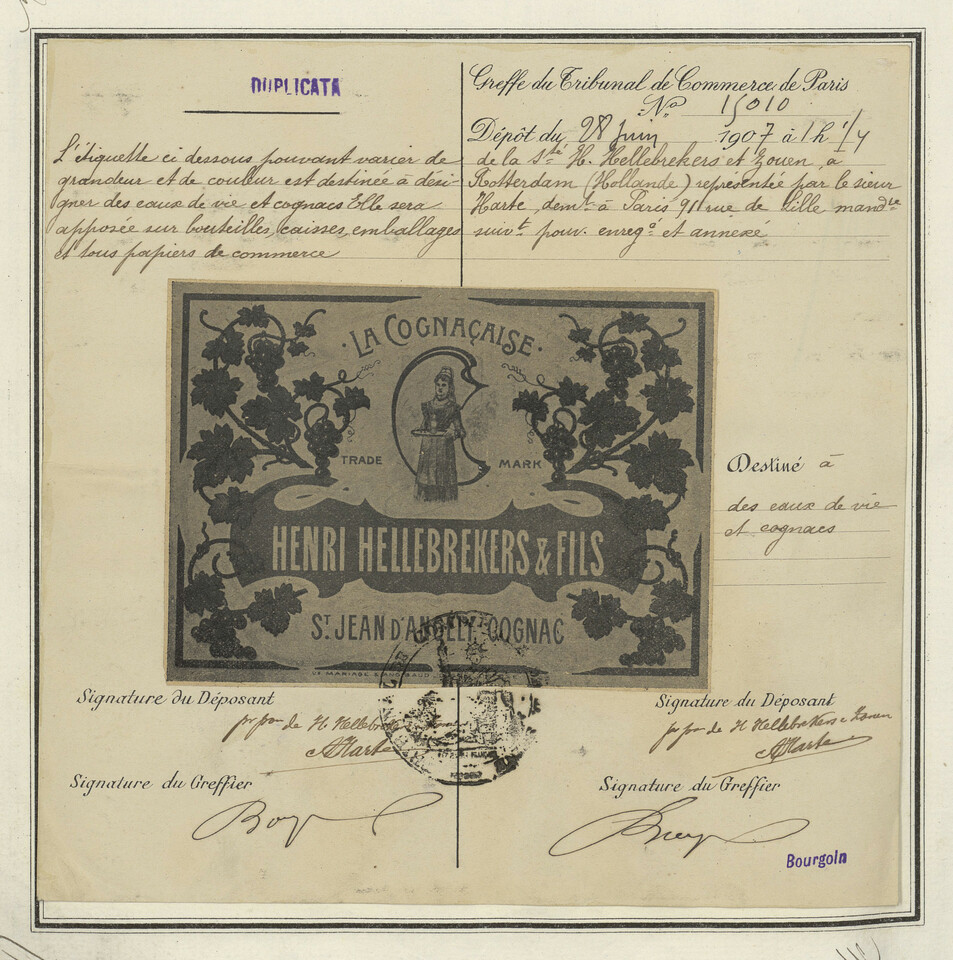 DUPLICATA
L'étiquette ci dessous pouvant varier de
grandeur et de couleur est destinée à dési-
gner des eaux de vie et cognacs Elle sera
apposée sur bouteilles, caisses, emballages
et tous papiers de commerce
Greffe du Tribunal de Commerce de Paris
No. 15010
Dépôt du 28 Juin 1907 à 1h 1/4
de la Sté H. Hellebrekers et Zonen, à
Rotterdam (Hollande) représentée par le sieur
Harte, demt à Paris 91 rue de Lille mandre
suivt pouv. enregé et annexe
LA COGNAÇAISE
TRADE MARK
HENRI HELLEBREKERS & FILS
ST JEAN D'ANGELY, COGNAC
Destiné à
des eaux de vie
et cognacs
Signature du Déposant
pr pon de H Hellebrekers
AHarte
Signature du Greffier
Signature du Déposant
pr pon de H Hellebrekers & Zonen
AHarte
Signature du Greffier
Bourgoin